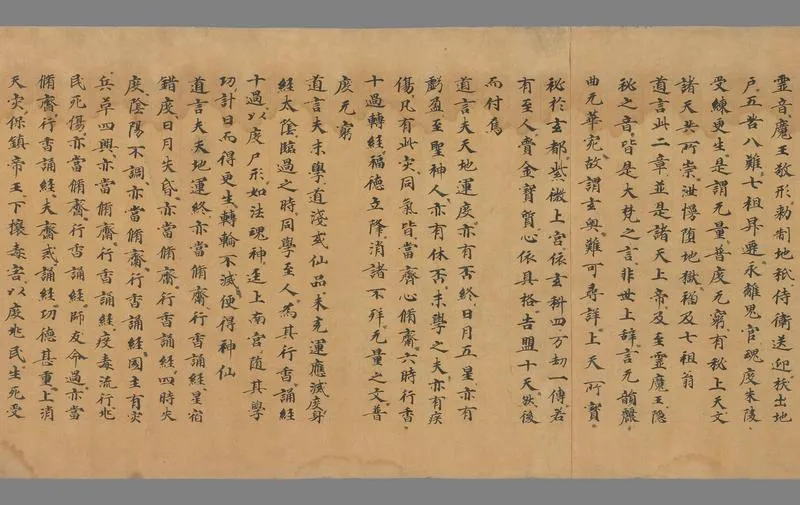 靈音魔王敬形勑制地祇侍衛送迎拔出地
户五苦八難七祖昇遷永離鬼官魂度朱陵
受練更生是謂元量普度无窮有祕上天文
諸天共所崇泄慢墮地獄禍及七祖翁
道言此二章並是諸天上帝及至靈魔王隱
祕之音皆是大梵之言非世上辭言无韻麗
曲无華宛故謂玄奥難可尋詳上天所寶
祕於玄都紫微上宫依玄科四万劫一傳若
有至人賫金寶質心依具格告盟十天然後
而付焉
道言夫天地運度亦有否終日月五星亦有
虧盈至聖神人亦有休否末學之夫亦有疾
傷凡有此灾同氣皆當齊心脩齋六時行香
十過轉經福德立降消諸不祥无量之文普
度无窮
道言夫末學道淺或仙品未充運應滅度身
經太陰臨過之時同學至人為其行香誦經
十過以度尸形如法魂神逕上南宫随其學
功計日而得更生轉輪不滅便得神仙
道言夫天地運終亦當脩齋行香誦經星宿
錯度日月失昏亦當脩齋行香誦經四時失
度陰陽不調亦當脩齋行香誦經國主有灾
兵革四興亦當脩齋行香誦經疫毒流行兆
民死傷亦當脩齋行香誦經師友命過亦當
脩齋行香誦經夫齋戒誦經功德甚重上消
天灾保鎮帝王下攘毒害以度兆民生死受